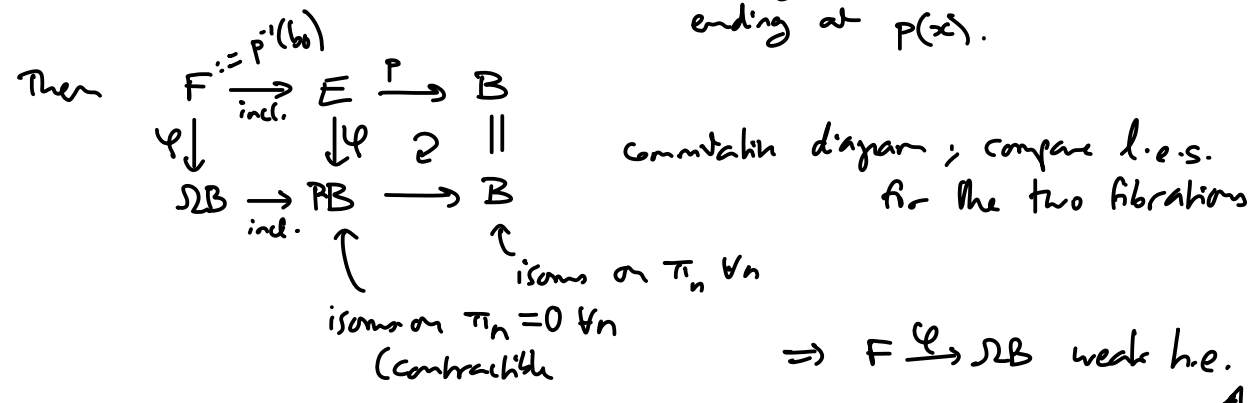 ending at p(x).
Then F := p⁻¹(b₀) →incl. E →p B
φ↓ ↓φ ↻ ||
ΩB →incl. PB → B
commutative diagram ; compare l.e.s.
for the two fibrations
isoms on πₙ ∀n
isoms on πₙ = 0 ∀n
(contractible
⇒ F →φ ΩB weak h.e.